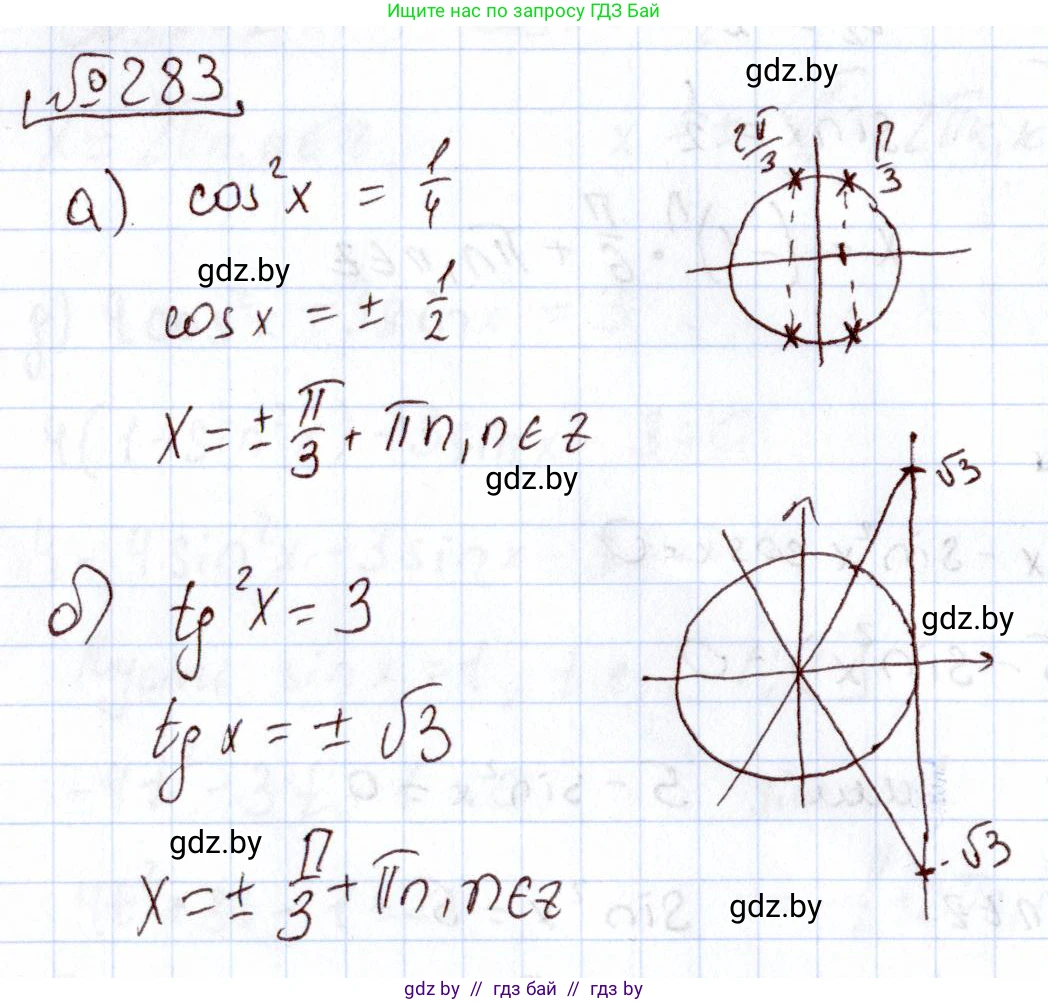 Ищите нас по запросу ГДЗ Бай
№283
gdz.by
а) cos²x = 1/4
2π/3 π/3
gdz.by
cos x = ± 1/2
x = ± π/3 + πn, n ∈ z
gdz.by
√3
б) tg²x = 3
gdz.by
tg x = ± √3
gdz.by
-√3
x = ± π/3 + πn, n ∈ z
gdz.by
gdz.by // гдз бай // гдз by